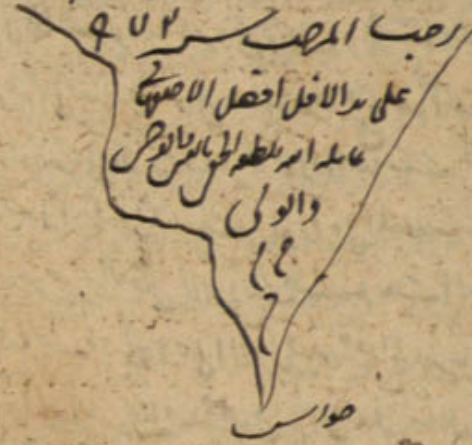 رجب المرجب سنه ٩٧٣
على يد الاقل افضل الاصفهانى
عامله الله بلطفه الخفى بالنبى والوصى
والولى
م م
م